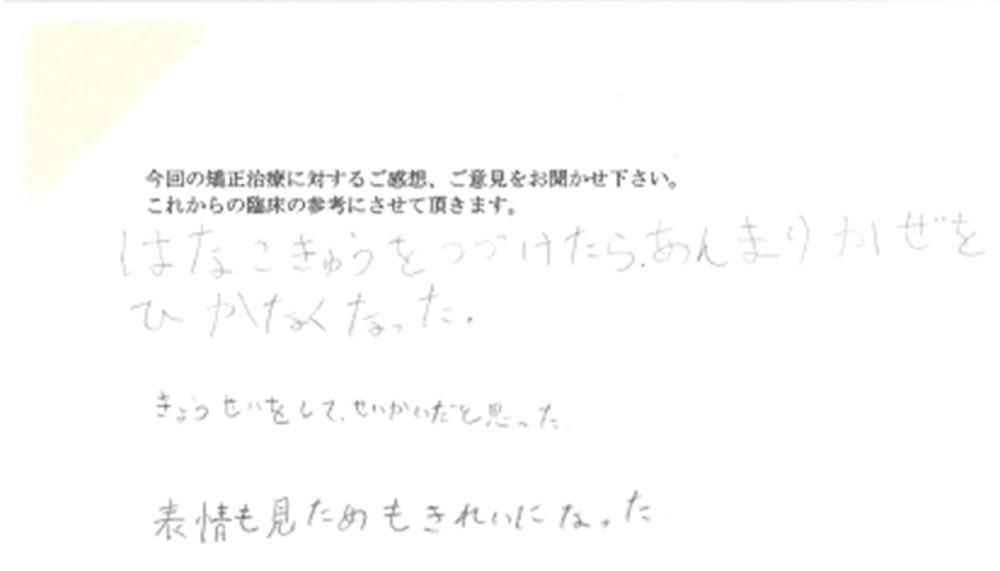 今回の矯正治療に対するご感想、ご意見をお聞かせ下さい。
これからの臨床の参考にさせて頂きます。
はなこきゅうをつづけたら、あんまりかぜを
ひかなくなった。
きょうせいをして、せいかいだと思った
表情も見ためもきれいになった